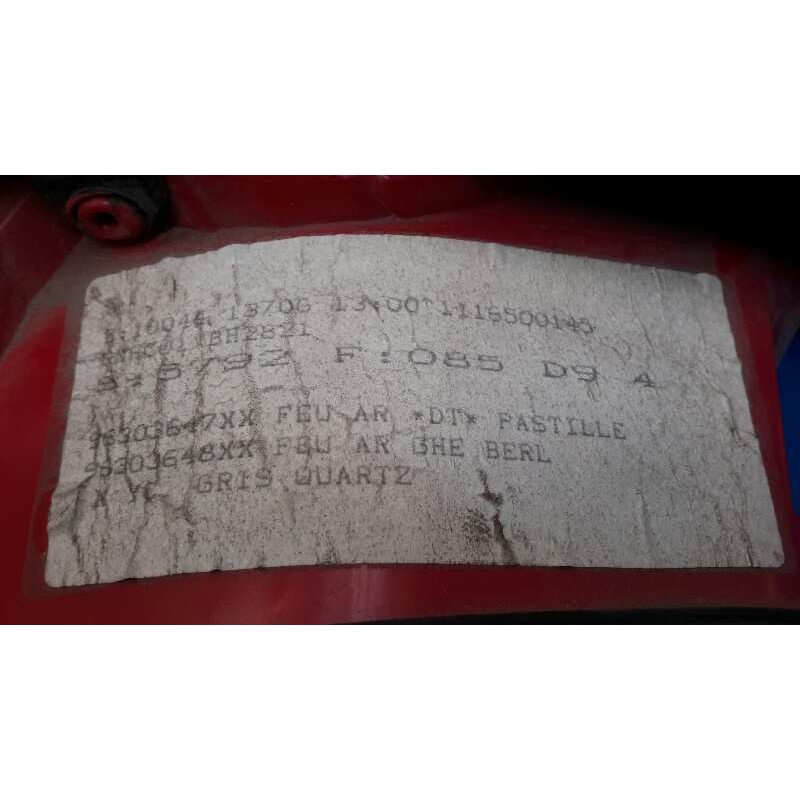 13/06 13:00 1116500145
F:085 D9 4
96303647XX FEU AR *DT* PASTILLE
96303648XX FEU AR GHE BERL
GRIS QUARTZ